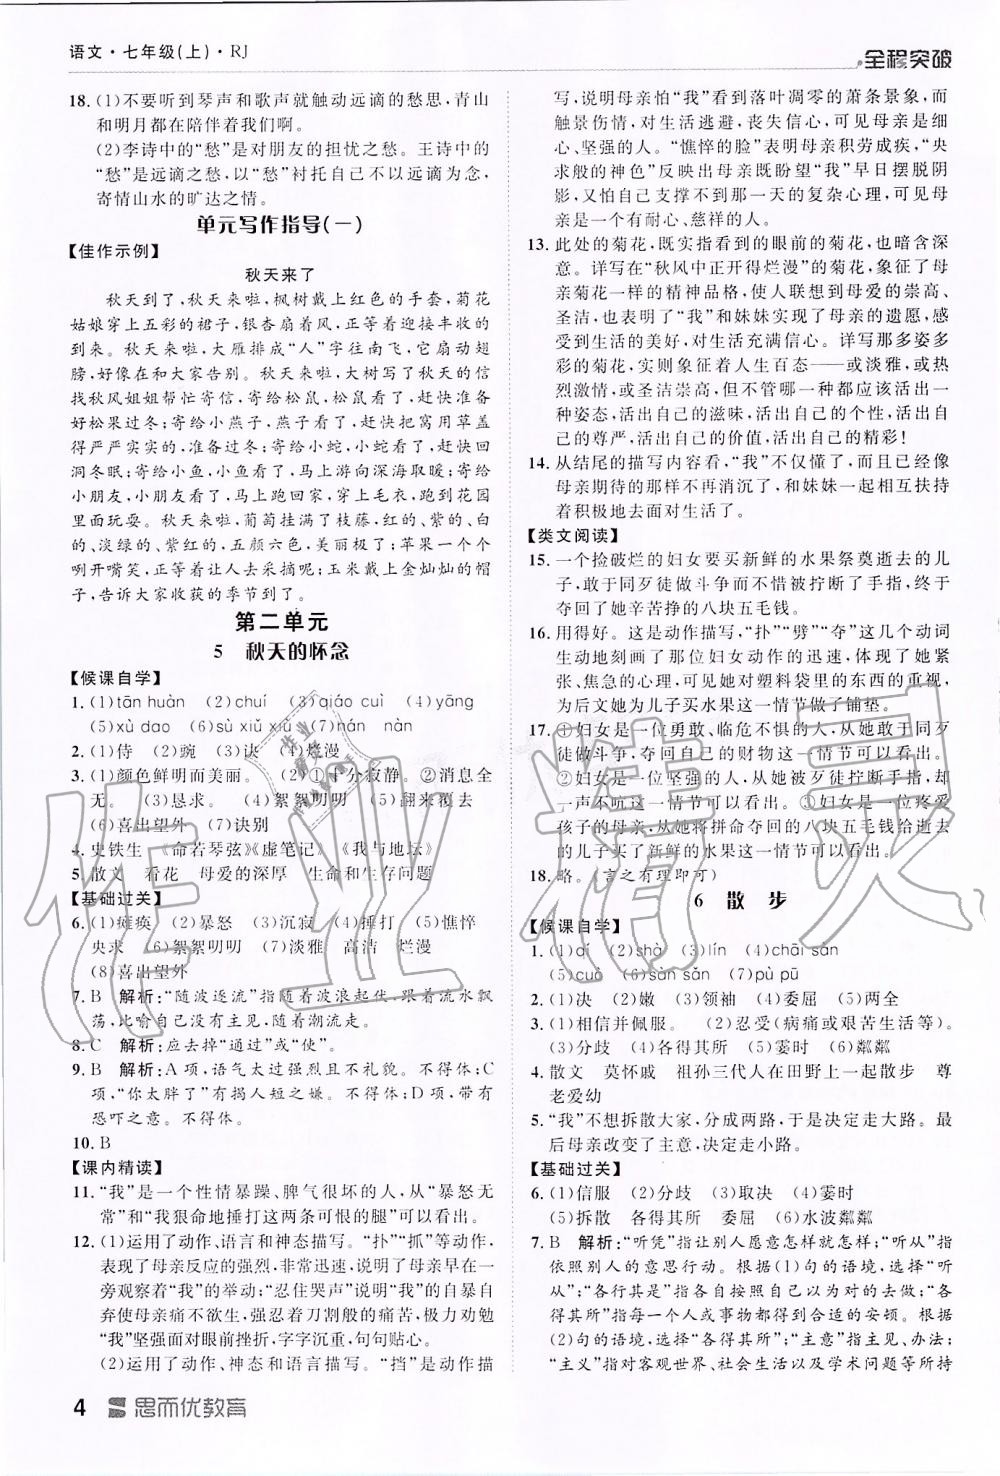 语文·七年级(上)·RJ
全程突破
18. (1)不要听到琴声和歌声就触动远谪的愁思,青山
和明月都在陪伴着我们啊。
(2)李诗中的“愁”是对朋友的担忧之愁。王诗中的
“愁”是远谪之愁,以“愁”衬托自己不以远谪为念,
寄情山水的旷达之情。
单元写作指导(一)
【佳作示例】
秋天来了
秋天到了,秋天来啦,枫树戴上红色的手套,菊花
姑娘穿上五彩的裙子,银杏扇着风,正等着迎接丰收的
到来。秋天来啦,大雁排成“人”字往南飞,它扇动翅
膀,好像在和大家告别。秋天来啦,大树写了秋天的信
找秋风姐姐帮忙寄信,寄给松鼠,松鼠看了,赶快准备
好松果过冬;寄给小燕子,燕子看了,赶快把窝用草盖
得严严实实的,准备过冬;寄给小蛇,小蛇看了,赶快回
洞冬眠;寄给小鱼,小鱼看了,马上游向深海取暖;寄给
小朋友,小朋友看了,马上跑回家,穿上衣服,跑到花园
里面玩耍。秋天来啦,葡萄挂满了枝藤,红的、紫的、白
的、淡绿的、紫红的,五颜六色,美丽极了;苹果一个个
咧开嘴笑,正等着让人去采摘呢;玉米戴上金灿灿的帽
子,告诉大家收获的季节到了。
第二单元
5 秋天的怀念
【候课自学】
1. (1)tān huàn (2)chuí (3)qiáo cuì (4)yāng
(5)xù dao (6)sù xiǔ xiù (7)nán nàn
2. (1)侍 (2)豌 (3)诀 (4)烂漫
3. (1)颜色鲜明而美丽。 (2)①十分寂静。②消息全
无。 (3)恳求。 (4)絮絮叨叨 (5)翻来覆去
(6)喜出望外 (7)诀别
4. 史铁生 《命若琴弦》《虚笔记》《我与地坛》
5. 散文 看花 母爱的深厚 生命和生存问题
【基础过关】
6. (1)瘫痪 (2)暴怒 (3)沉寂 (4)捶打 (5)憔悴
央求 (6)絮絮叨叨 (7)淡雅 高洁 烂漫
(8)喜出望外
7. B 解析:“随波逐流”指随着波浪起伏,跟着流水飘
荡,比喻自己没有主见,随着潮流走。
8. C 解析:应去掉“通过”或“使”。
9. B 解析:A项,语气太过强烈且不礼貌。不得体;C
项,“你太胖了”有揭人短之嫌。不得体;D项,带有
恐吓之意。不得体。
10. B
【课内精读】
11. “我”是一个性情暴躁、脾气很坏的人,从“暴怒无
常”和“我狠命地捶打这两条可恨的腿”可以看出。
12. (1)运用了动作、语言和神态描写。“扑”“抓”等动作,
表现了母亲反应的强烈,非常迅速,说明了母亲早在一
旁观察着“我”的举动;“忍住哭声”说明“我”的自暴自
弃使母亲痛不欲生,强忍着刀割般的痛苦,极力劝勉
“我”坚强面对眼前挫折,字字沉重,句句贴心。
(2)运用了动作、神态和语言描写。“挡”是动作描
写,说明母亲怕“我”看到落叶凋零的萧条景象,而
触景伤情,对生活逃避,丧失信心,可见母亲是细
心、坚强的人。“憔悴的脸”表明母亲积劳成疾,“央
求般的神色”反映出母亲既盼望“我”早日摆脱阴
影,又怕自己支撑不到那一天的复杂心理,可见母
亲是一个有耐心、慈祥的人。
13. 此处的菊花,既实指看到的眼前的菊花,也暗含深
意。详写在“秋风中正开得烂漫”的菊花,象征了母
亲亲菊花一样的精神品格,使人联想到母爱的崇高、
圣洁,也表明了“我”和妹妹实现了母亲的遗愿,感
受到生活的美好,对生活充满信心。详写那多姿多
彩的菊花,实则象征着人生百态——或淡雅,或热
烈激情,或圣洁崇高,但不管哪一种都应该活出一
种姿态,活出自己的滋味,活出自己的个性,活出自
己的尊严,活出自己的价值,活出自己的精彩!
14. 从结尾的描写内容看,“我”不仅懂了,而且已经像
母亲期待的那样不再消沉了,和妹妹一起相互扶持
着积极地去面对生活了。
【类文阅读】
15. 一个捡破烂的妇女要买新鲜的水果祭奠逝去的儿
子,敢于同歹徒做斗争而不惜被拧断了手指,终于
夺回了她辛苦挣的八块五毛钱。
16. 用得好。这是动作描写,“扑”“劈”“夺”这几个动词
生动地刻画了那位妇女动作的迅速,体现了她紧
张、焦急的心理,可见她对塑料袋里的东西的重视,
为后文她为儿子买水果这一情节做了铺垫。
17. ①妇女是一位勇敢、临危不惧的人,从她敢于同歹
徒做斗争,夺回自己的财物这一情节可以看出。
②妇女是一位坚强的人,从她被歹徒拧断手指,一
声不吭这一情节可以看出。③妇女是一位疼爱
孩子的母亲,从她将拼命夺回的八块五毛钱给逝去
的儿子买了新鲜的水果这一情节可以看出。
18. 略。(言之有理即可)
6 散步
【候课自学】
1. (1)ái (2)shà (3)lín (4)chāi sàn
(5)cuǒ (6)sǎn sàn (7)pù pū
2. (1)决 (2)嫩 (3)领袖 (4)委屈 (5)两全
3. (1)相信并佩服。 (2)忍受(病痛或艰苦生活等)。
(3)分歧 (4)各得其所 (5)霎时 (6)粼粼
4. 散文 莫怀戚 祖孙三代人在田野上一起散步 尊
老爱幼
5. “我”不想拆散大家,分成两路,于是决定走大路。最
后母亲改变了主意,决定走小路。
【基础过关】
6. (1)信服 (2)分歧 (3)取决 (4)霎时
(5)拆散 各得其所 委屈 (6)水波粼粼
7. B 解析:“听凭”指让别人愿意怎样就怎样;“听从”指
依照别人的意思行动。根据(1)句的语境,选择“听
从”;“各行其是”指各自按照自己以为对的去做;“各
得其所”指每一个人或事物都得到合适的安顿。根据
(2)句的语境,选择“各得其所”;“主意”指主见、办法;
“主义”指对客观世界、社会生活以及学术问题等所持
4 思而优教育
作业精灵